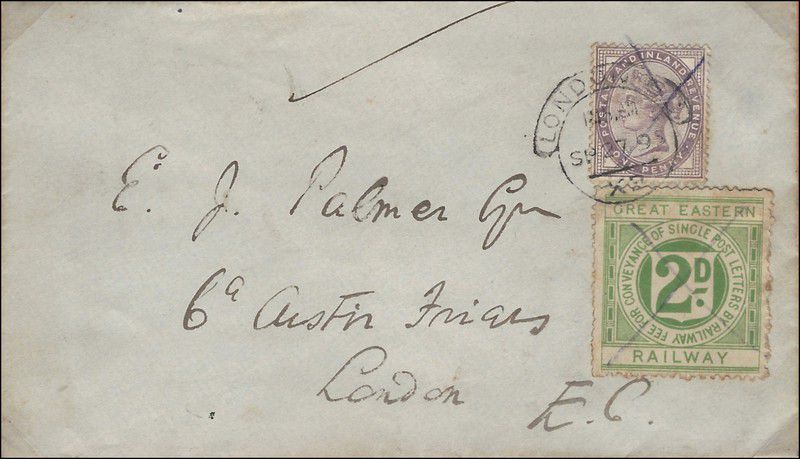 E. J. Palmer Esqre
6a Austin Friars
London
E.C.
POSTAGE AND INLAND REVENUE
ONE PENNY
LONDON
SP 7 9
GREAT EASTERN
FEE FOR CONVEYANCE OF SINGLE POST LETTERS BY RAILWAY
2D.
RAILWAY